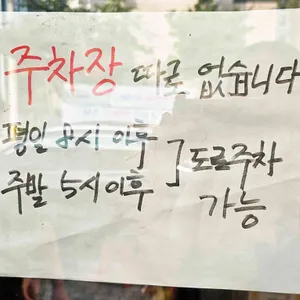 주차장 따로 없습니다
평일 8시 이후
주말 5시 이후 ] 도로주차
가능